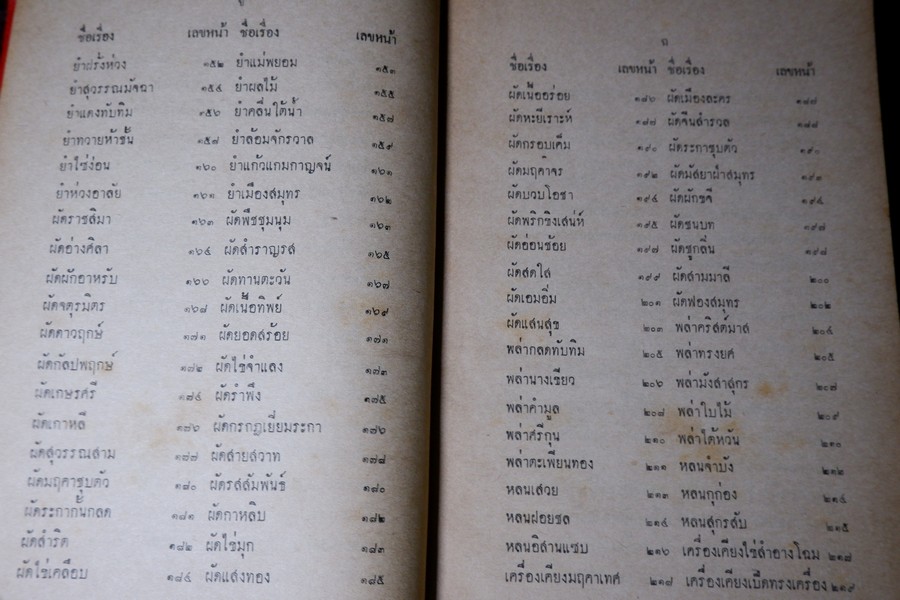 ชื่อเรื่อง เลขหน้า ชื่อเรื่อง เลขหน้า
ยำฝรั่งห่วง ๑๕๒ ยำแม่พยอม ๑๕๓
ยำสุวรรณมัจฉา ๑๕๔ ยำผลไม้ ๑๕๕
ยำแดงทับทิม ๑๕๖ ยำคลื่นใต้น้ำ ๑๕๗
ยำทวายห้าชั้น ๑๕๗ ยำล้อมจักรวาล ๑๕๙
ยำไข่ง่อน ๑๖๐ ยำแก้วแกมกาญจน์ ๑๖๑
ยำห่วงอาลัย ๑๖๑ ยำเมืองสมุทร ๑๖๒
ผัดราชสีมา ๑๖๓ ผัดพืชชุมนุม ๑๖๓
ผัดอ่างศิลา ๑๖๔ ผัดสำราญรส ๑๖๕
ผัดผักอาหรับ ๑๖๖ ผัดทานตะวัน ๑๖๗
ผัดจตุรมิตร ๑๖๘ ผัดเนื้อทิพย์ ๑๖๙
ผัดดาวฤกษ์ ๑๗๑ ผัดยอดสร้อย ๑๗๑
ผัดกัลปพฤกษ์ ๑๗๒ ผัดไข่จำแลง ๑๗๓
ผัดเกษรศรี ๑๗๔ ผัดรำพึง ๑๗๕
ผัดเกาหลี ๑๗๖ ผัดกรกฎเยี่ยมระกา ๑๗๖
ผัดสุวรรณสาม ๑๗๗ ผัดสายสวาท ๑๗๘
ผัดมฤคาชุบตัว ๑๘๐ ผัดรสสัมพันธ์ ๑๘๐
ผัดระกากันกลด ๑๘๑ ผัดกาหลิบ ๑๘๒
ผัดสำริด ๑๘๒ ผัดไข่มุก ๑๘๓
ผัดไข่เคลือบ ๑๘๔ ผัดแสงทอง ๑๘๕
ถ
ชื่อเรื่อง เลขหน้า ชื่อเรื่อง เลขหน้า
ผัดเนื้ออร่อย ๑๘๖ ผัดเมืองละคร ๑๘๗
ผัดหะยีเราะห์ ๑๘๘ ผัดจีนสำรวล ๑๘๘
ผัดกรอบเค็ม ๑๙๐ ผัดระกาชุบตัว ๑๙๐
ผัดมฤคาจร ๑๙๒ ผัดมัสยาฝ่าสมุทร ๑๙๓
ผัดบวบโอชา ๑๙๔ ผัดผักชี ๑๙๔
ผัดพริกขิงเสน่ห์ ๑๙๕ ผัดชนบท ๑๙๗
ผัดอ่อนช้อย ๑๙๗ ผัดชูกลิ่น ๑๙๘
ผัดสดใส ๑๙๙ ผัดสามมาลี ๒๐๐
ผัดเอมอิ่ม ๒๐๑ ผัดฟองสมุทร ๒๐๒
ผัดแสนสุข ๒๐๓ พล่าคริสต์มาส ๒๐๔
พล่ากลดทับทิม ๒๐๕ พล่าทรงยศ ๒๐๕
พล่านางเขียว ๒๐๖ พล่ามังสาสุกร ๒๐๗
พล่าคำมูล ๒๐๘ พล่าใบไม้ ๒๐๙
พล่าศรีกุน ๒๑๐ พล่าไต้หวัน ๒๑๐
พล่าตะเพียนทอง ๒๑๑ หลนจำบัง ๒๑๒
หลนเสวย ๒๑๓ หลนกุก่อง ๒๑๔
หลนฝอยชล ๒๑๔ หลนสุกรสับ ๒๑๕
หลนอิสานแซบ ๒๑๖ เครื่องเคียงไข่สำอางโฉม ๒๑๘
เครื่องเคียงมฤคาเทศ ๒๑๘ เครื่องเคียงเป็ดทรงเครื่อง ๒๑๙